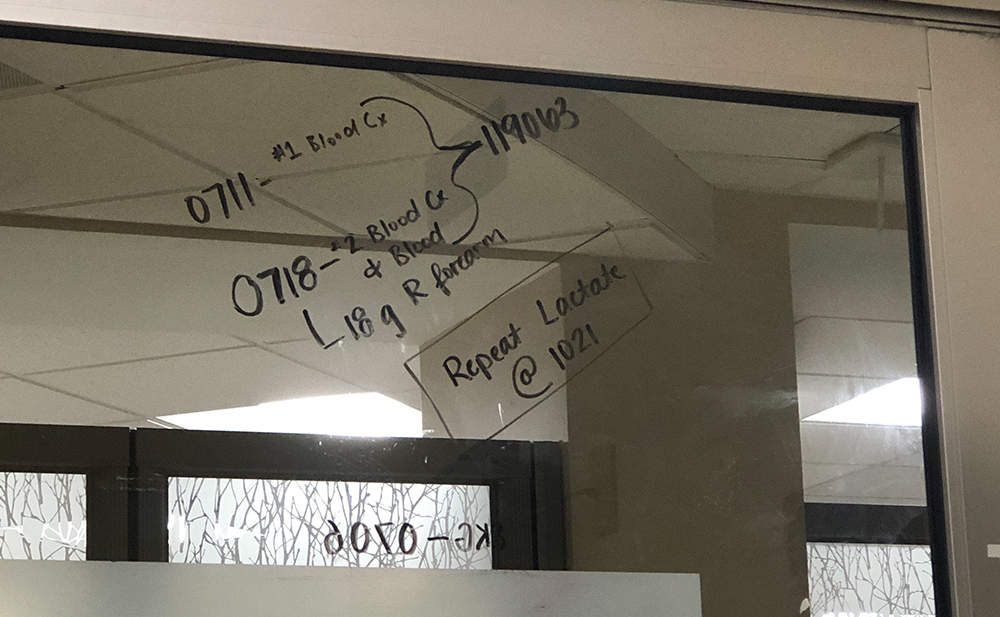 0711 - #1 Blood Cx
119063
0718 - #2 Blood Cx
& Blood
L 18g R forearm
Repeat Lactate
@ 1021
EKG - 0706